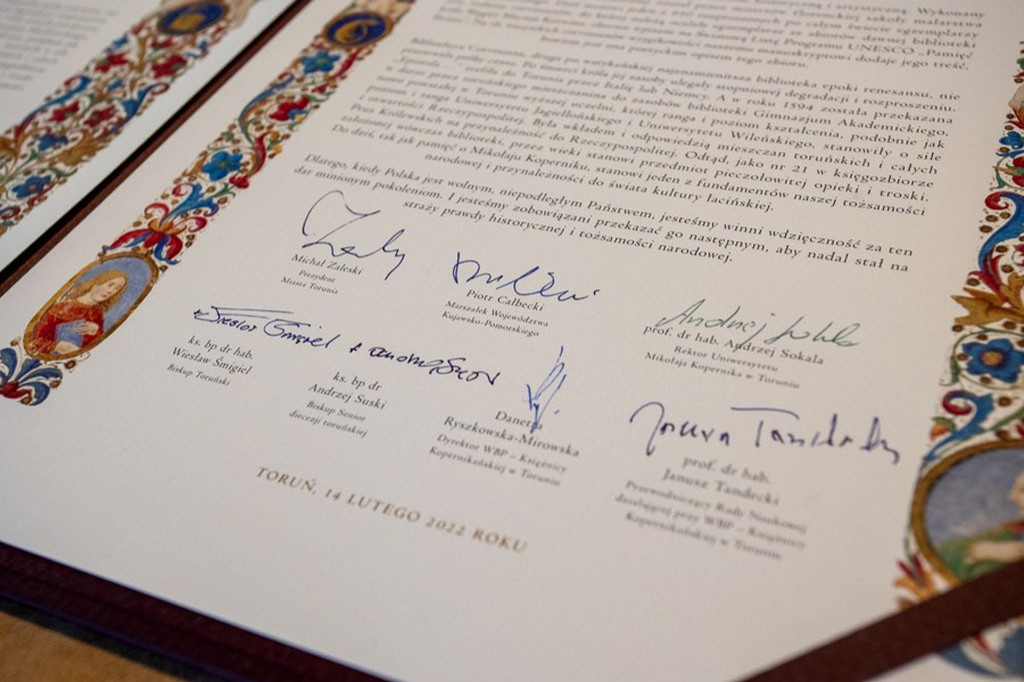 historyczną i artystyczną. Wykonany
szkoły malarstwa
po całym świecie egzemplarzy
ze zbiorów dawnej biblioteki
Listę Programu UNESCO „Pamięć
naszemu manuskryptowi dodaje jego treść,
poetyckim opisem tego zbioru.
Bibliotheca Corviniana, druga po watykańskiej najznamienitsza biblioteka epoki renesansu, nie
próby czasu. Po śmierci króla jej zasoby ulegały stopniowej degradacji i rozproszeniu.
trafiła do Torunia przez Italię lub Niemcy. A w roku 1594 została przekazana
w darze przez toruńskiego mieszczanina do zasobów biblioteki Gimnazjum Akademickiego,
powstałej w Toruniu wyższej uczelni, której ranga i poziom kształcenia, podobnie jak
poziom i ranga Uniwersytetu Jagiellońskiego i Uniwersytetu Wileńskiego, stanowiły o sile
i otwartości Rzeczypospolitej. Była wkładem i odpowiedzią mieszczan toruńskich i całych
Prus Królewskich na przynależność do Rzeczypospolitej. Odtąd, jako nr 21 w księgozbiorze
założonej wówczas biblioteki, przez wieki stanowi przedmiot pieczołowitej opieki i troski.
Do dziś, tak jak pamięć o Mikołaju Koperniku, stanowi jeden z fundamentów naszej tożsamości
narodowej i przynależności do świata kultury łacińskiej.
Dlatego, kiedy Polska jest wolnym, niepodległym Państwem, jesteśmy winni wdzięczność za ten
dar minionym pokoleniom. I jesteśmy zobowiązani przekazać go następnym, aby nadal stał na
straży prawdy historycznej i tożsamości narodowej.
Michał Zaleski
Prezydent
Miasta Torunia
Piotr Całbecki
Marszałek Województwa
Kujawsko-Pomorskiego
Andrzej Sokala
prof. dr hab. Andrzej Sokala
Rektor Uniwersytetu
Mikołaja Kopernika w Toruniu
+ Wiesław Śmigiel
ks. bp dr hab.
Wiesław Śmigiel
Biskup Toruński
+ Andrzej Suski
ks. bp dr
Andrzej Suski
Biskup Senior
diecezji toruńskiej
Danetta
Ryszkowska-Mirowska
Dyrektor WBP – Książnicy
Kopernikańskiej w Toruniu
Janusz Tandecki
prof. dr hab.
Janusz Tandecki
Przewodniczący Rady Naukowej
działającej przy WBP – Książnicy
Kopernikańskiej w Toruniu
TORUŃ, 14 LUTEGO 2022 ROKU